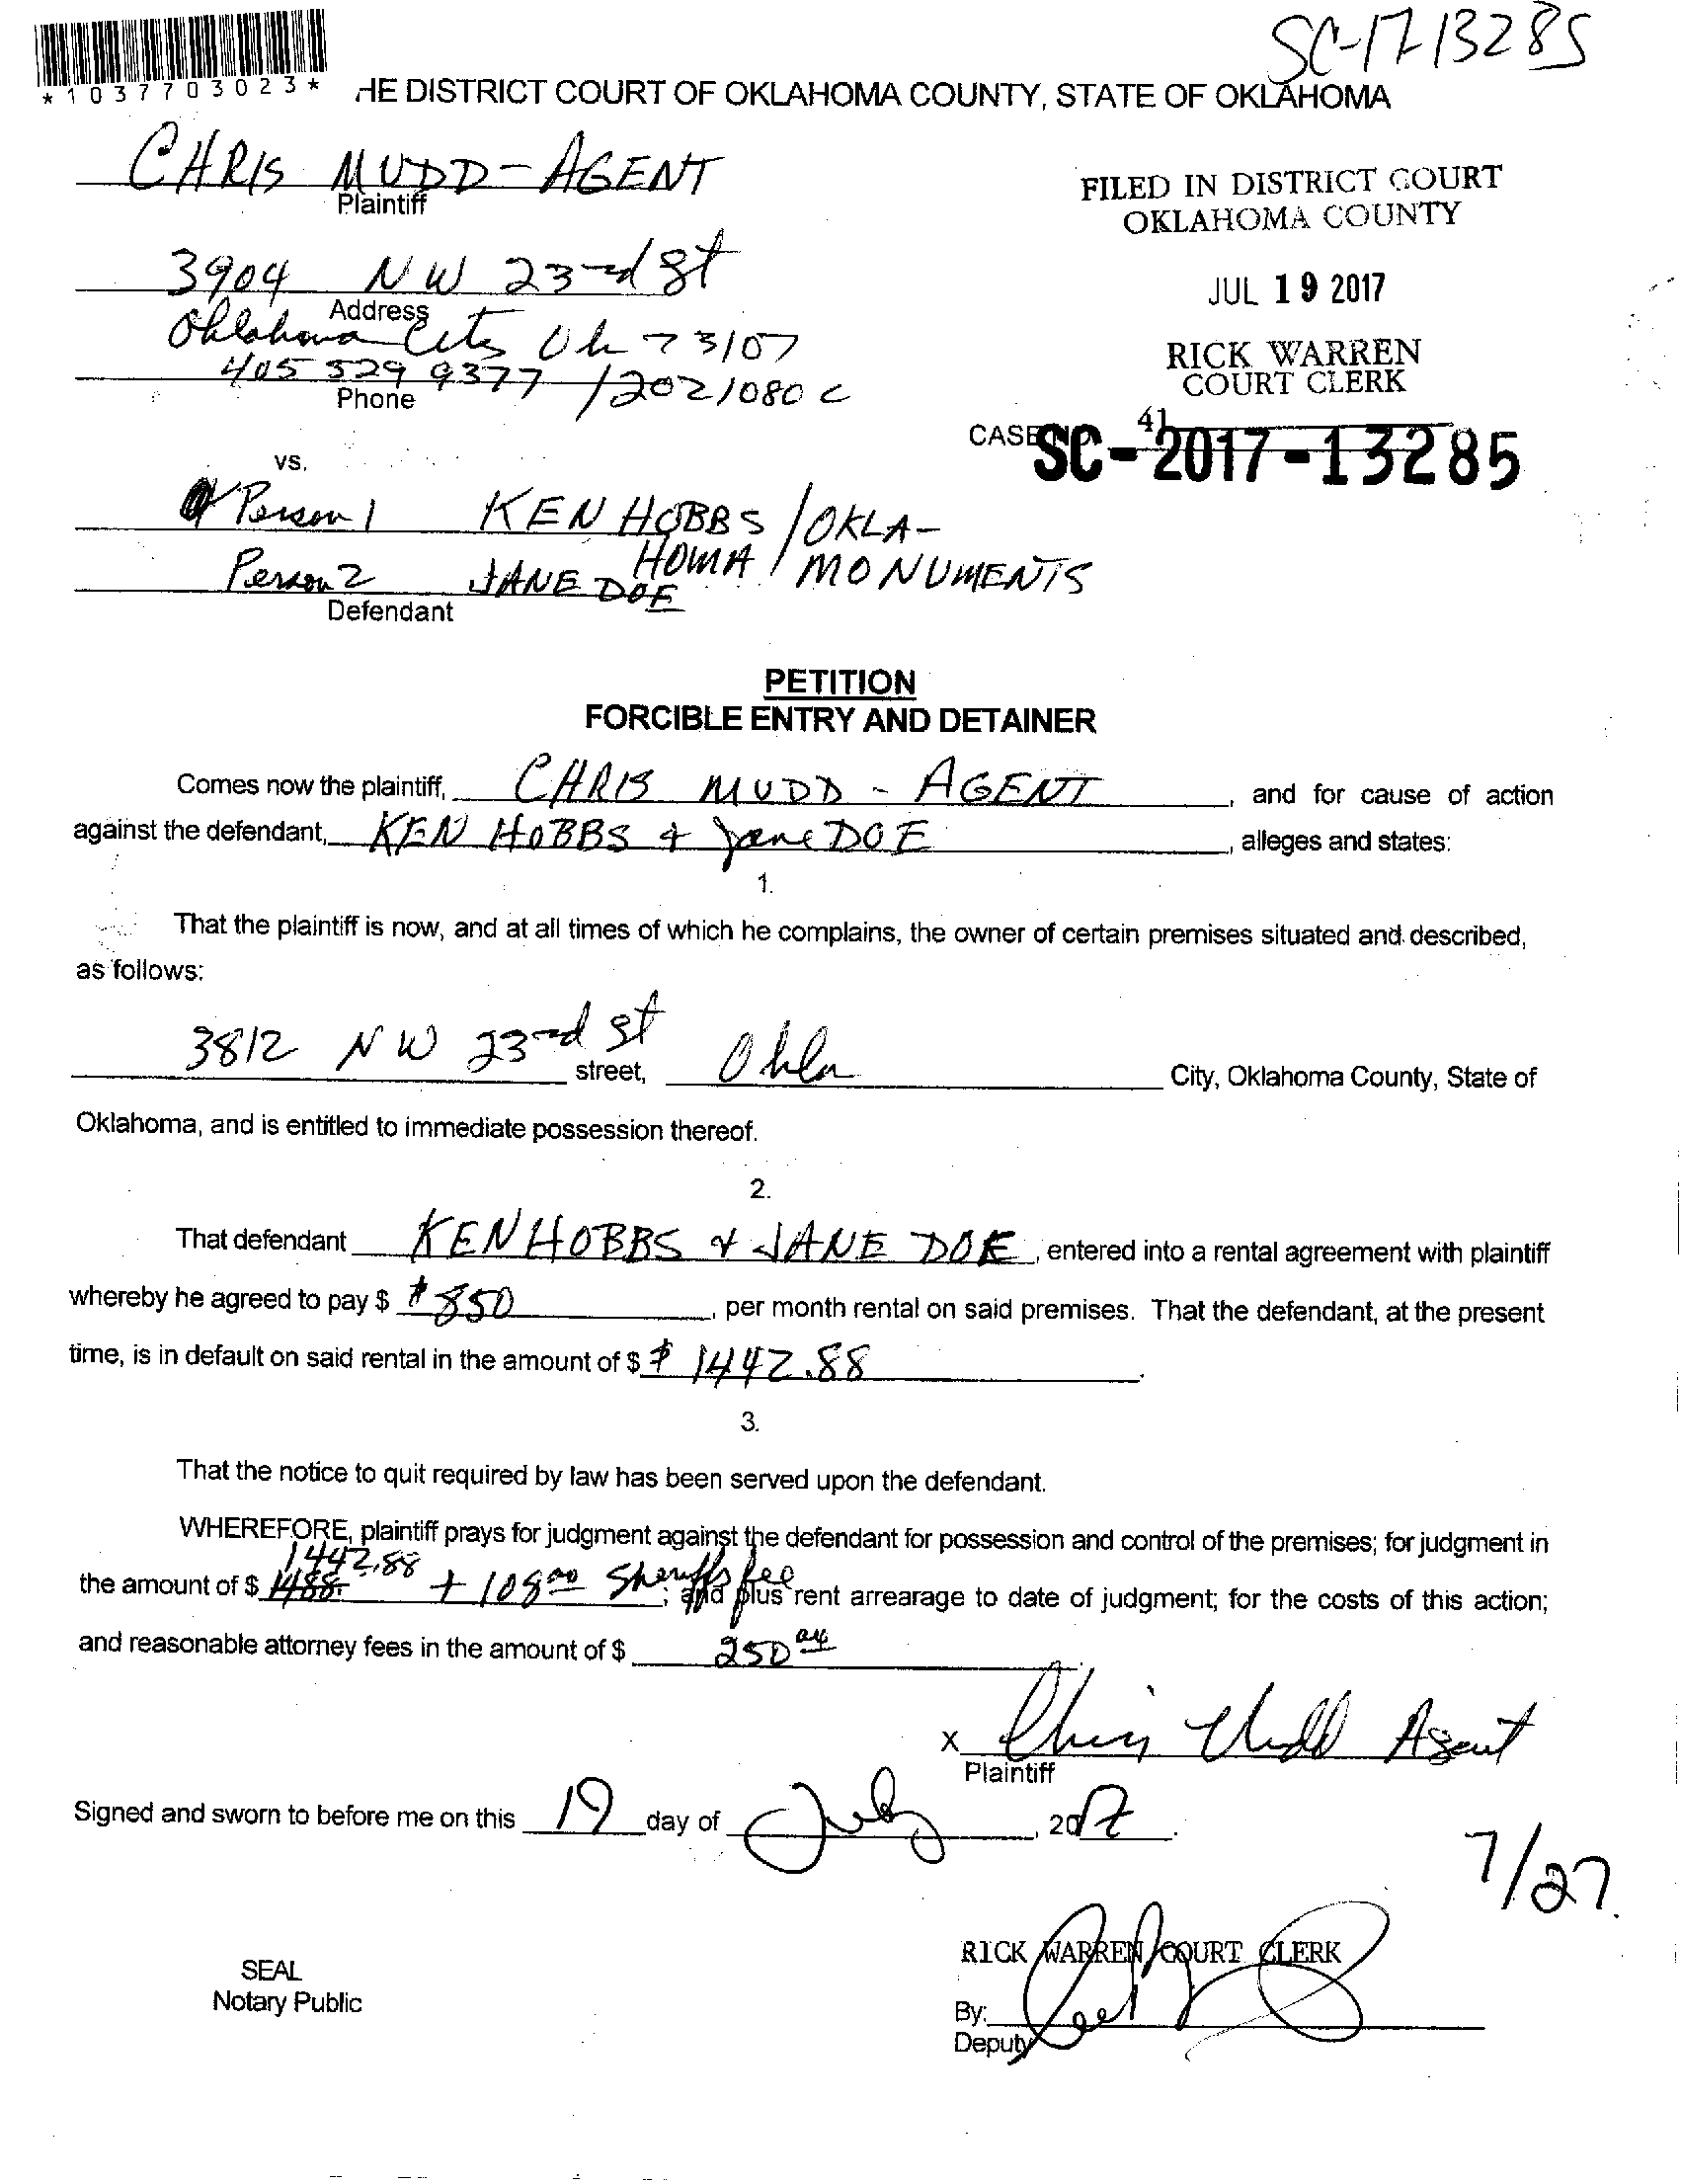 SC-17-13285
*1037703023*
HE DISTRICT COURT OF OKLAHOMA COUNTY, STATE OF OKLAHOMA
CHRIS MUDD-AGENT
Plaintiff
FILED IN DISTRICT COURT
OKLAHOMA COUNTY
3904 NW 23rd St
Address
JUL 19 2017
Oklahoma City Ok 73107
RICK WARREN
COURT CLERK
405 529 9377 / 2021080 C
Phone
CASE NO. 41
SC-2017-13285
vs.
Person 1 KEN HOBBS / OKLA-
HOMA / MONUMENTS
Person 2 JANE DOE
Defendant
PETITION
FORCIBLE ENTRY AND DETAINER
Comes now the plaintiff, CHRIS MUDD - AGENT, and for cause of action
against the defendant, KEN HOBBS & Jane DOE, alleges and states:
1.
That the plaintiff is now, and at all times of which he complains, the owner of certain premises situated and described,
as follows:
3812 NW 23rd St street, Okla City, Oklahoma County, State of
Oklahoma, and is entitled to immediate possession thereof.
2.
That defendant KEN HOBBS & JANE DOE, entered into a rental agreement with plaintiff
whereby he agreed to pay $ $850, per month rental on said premises. That the defendant, at the present
time, is in default on said rental in the amount of $ $ 1442.88.
3.
That the notice to quit required by law has been served upon the defendant.
WHEREFORE, plaintiff prays for judgment against the defendant for possession and control of the premises; for judgment in
1442.88
the amount of $ 1488- + 108 00 Sheriffs fee; and plus rent arrearage to date of judgment; for the costs of this action;
and reasonable attorney fees in the amount of $ 250
x Chris Mudd Agent
Plaintiff
Signed and sworn to before me on this 19 day of July, 2017.
7/27
RICK WARREN COURT CLERK
SEAL
Notary Public
By:
Deputy